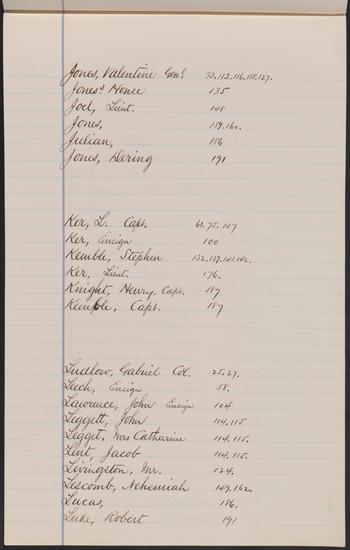 Jones, Valentine Genl. 53.113.116.118.127.
Jones's House 135
Joel, Lieut. 148
Jones, 159.160.
Julian, 186
Jones, Dering 191
Ker, L. Capt. 61.75.107
Ker, Ensign 100
Kemble, Stephen 132.139.141.142.
Ker, Lieut. 176.
Knight, Henry. Capt. 187
Kemble, Capt. 187
Ludlow, Gabriel Col. 25.27.
Leech, Ensign 58.
Lawrence, John Ensign 104
Leggett, John 114.115
Legget, Mrs Catharine 114.115.
Lent, Jacob 114.115.
Livingston, Mr. 124.
Lescomb, Nehemiah 149.162.
Lucas, 186.
Luke, Robert 191